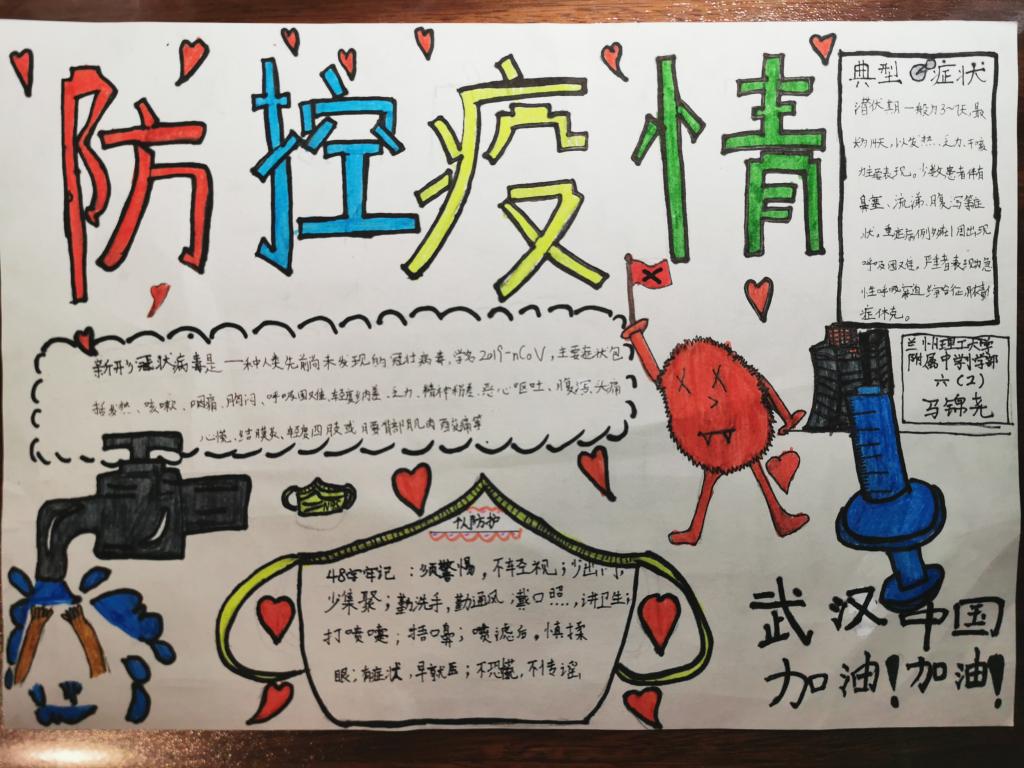 防控疫情
典型症状
潜伏期一般为3~7天,最
长为14天,以发热、乏力、干咳
为主要表现。少数患者伴有
鼻塞、流涕、腹泻等症
状,重症病例多在1周出现
呼吸困难,严重者表现为急
性呼吸窘迫综合征、脓毒
症休克。
新形冠状病毒是一种人类先前尚未发现的冠壮病毒,学名2019-nCoV,主要症状包
括发热、咳嗽、咽痛、胸闷、呼吸困难、轻度纳差、乏力、精神稍差、恶心呕吐、腹泻、头痛
心慌、结膜炎、轻度四肢或腰背部肌肉酸痛等
兰州理工大学
附属中学小学部
六(2)
马锦尧
个人防护
48字牢记:须警惕,不轻视;少出门,
少集聚;勤洗手,勤通风 戴口照...,讲卫生;
打喷嚏;捂口鼻;喷涕后。慎揉
眼;有症状,早就医;不恐慌,不传谣
武汉中国
加油!加油!